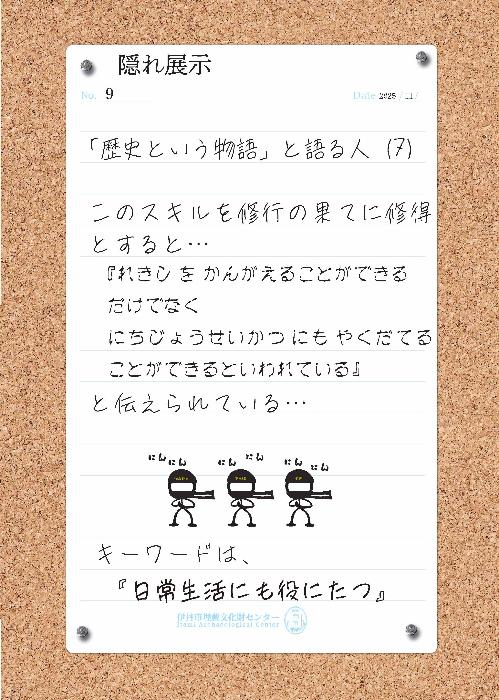 隠れ展示
No. 9 Date 2025 / 11 /
「歴史という物語」と語る人 (7)
このスキルを修行の果てに修得
とすると…
『れきし を かんがえることができる
だけでなく
にちじょうせいかつ にも やくだてる
ことができるといわれている』
と伝えられている…
にん にん にん にん にん にん
キーワードは、
『日常生活にも役にたつ』
伊丹市埋蔵文化財センター
Itami Archaeological Center